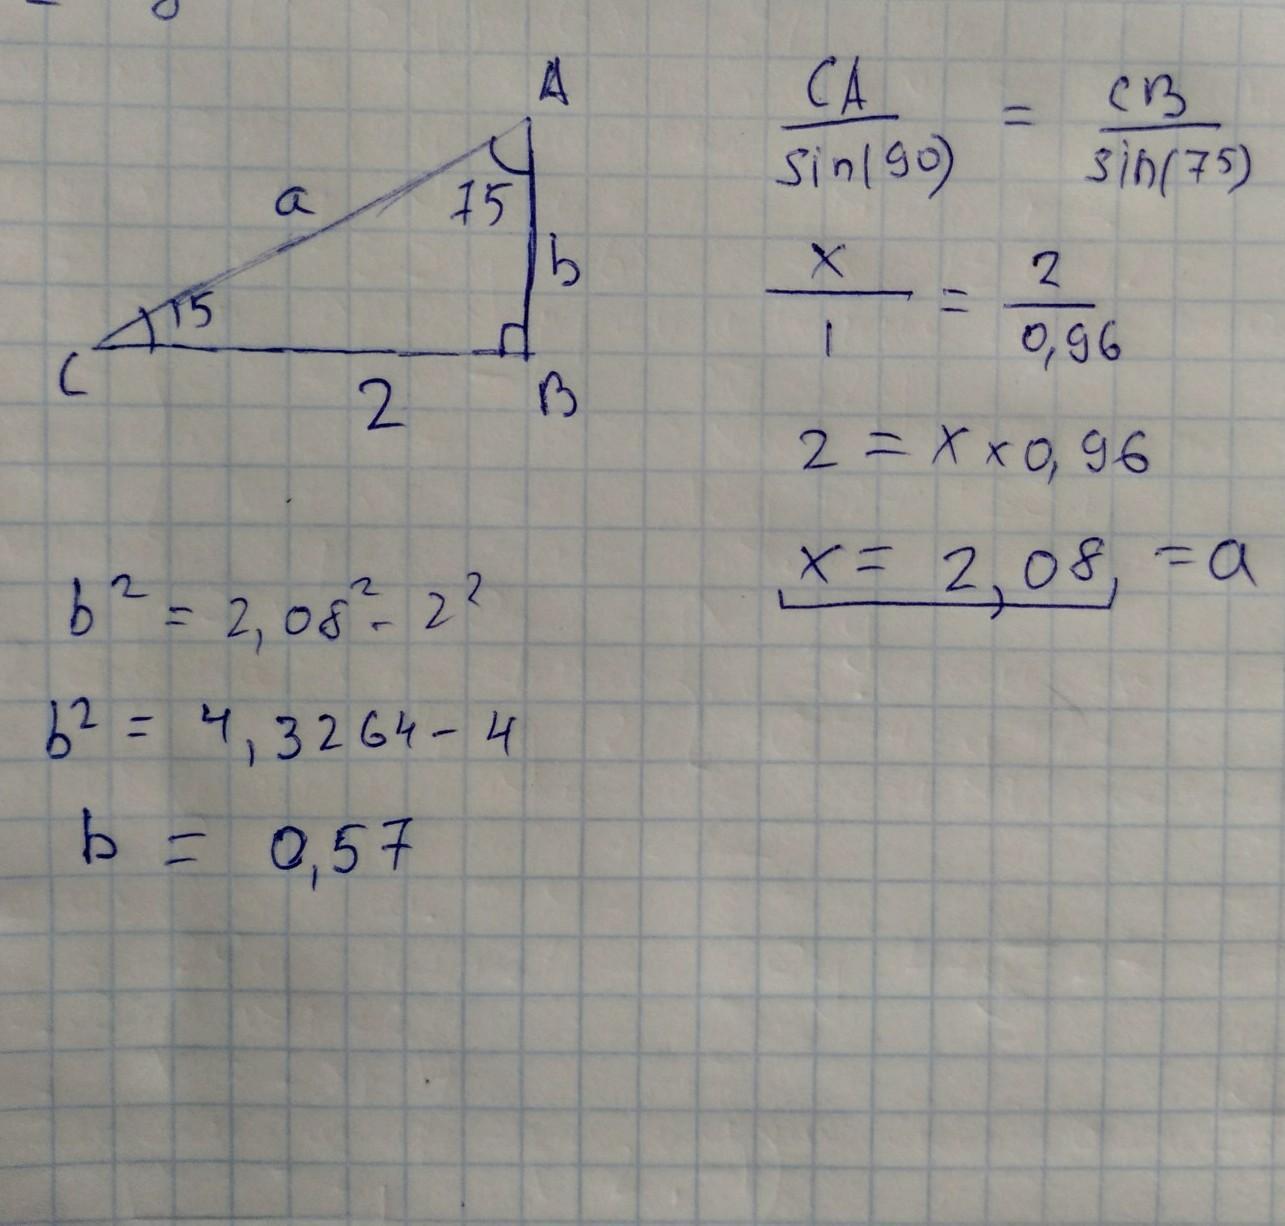 A
a
75
b
15
C
2
B
CA / sin(90) = CB / sin(75)
x / 1 = 2 / 0,96
2 = x × 0,96
x = 2,08, = a
b² = 2,08² - 2²
b² = 4,3264 - 4
b = 0,57